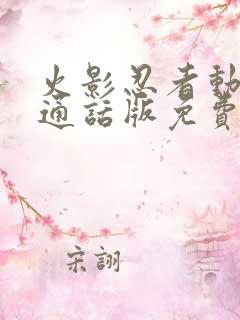 火影忍者動
通話版免費
宋詡